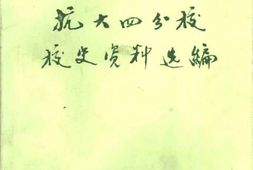 抗大四分校
校史资料选编